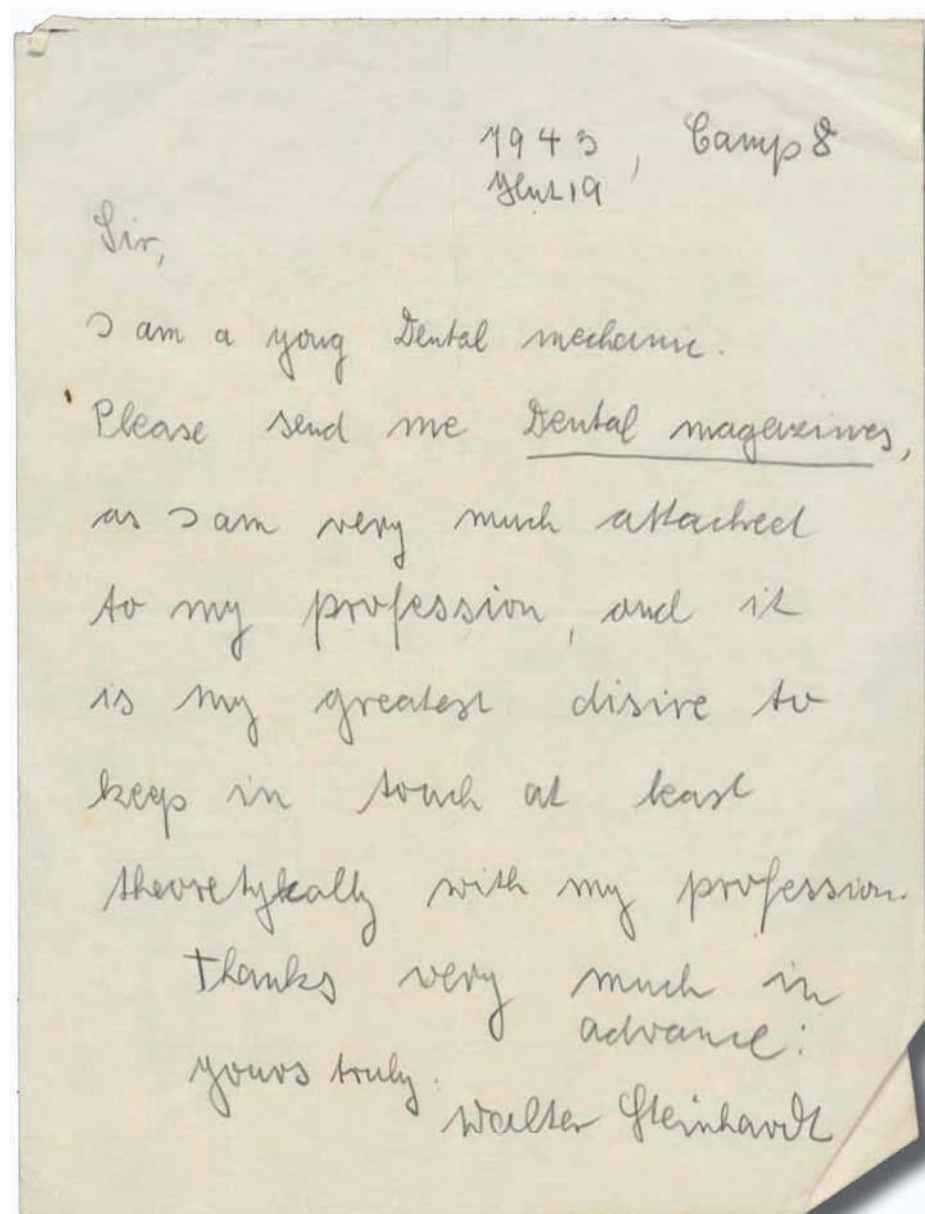 1943, Camp 8
Hut 19
Sir,
I am a yong Dental mechanic.
Please send me Dental magazines,
as I am very much attached
to my profession, and it
is my greatest disire to
keep in touch at least
theoretykally with my profession.
Thanks very much in
advance:
yours truly.
Walter Steinhardt